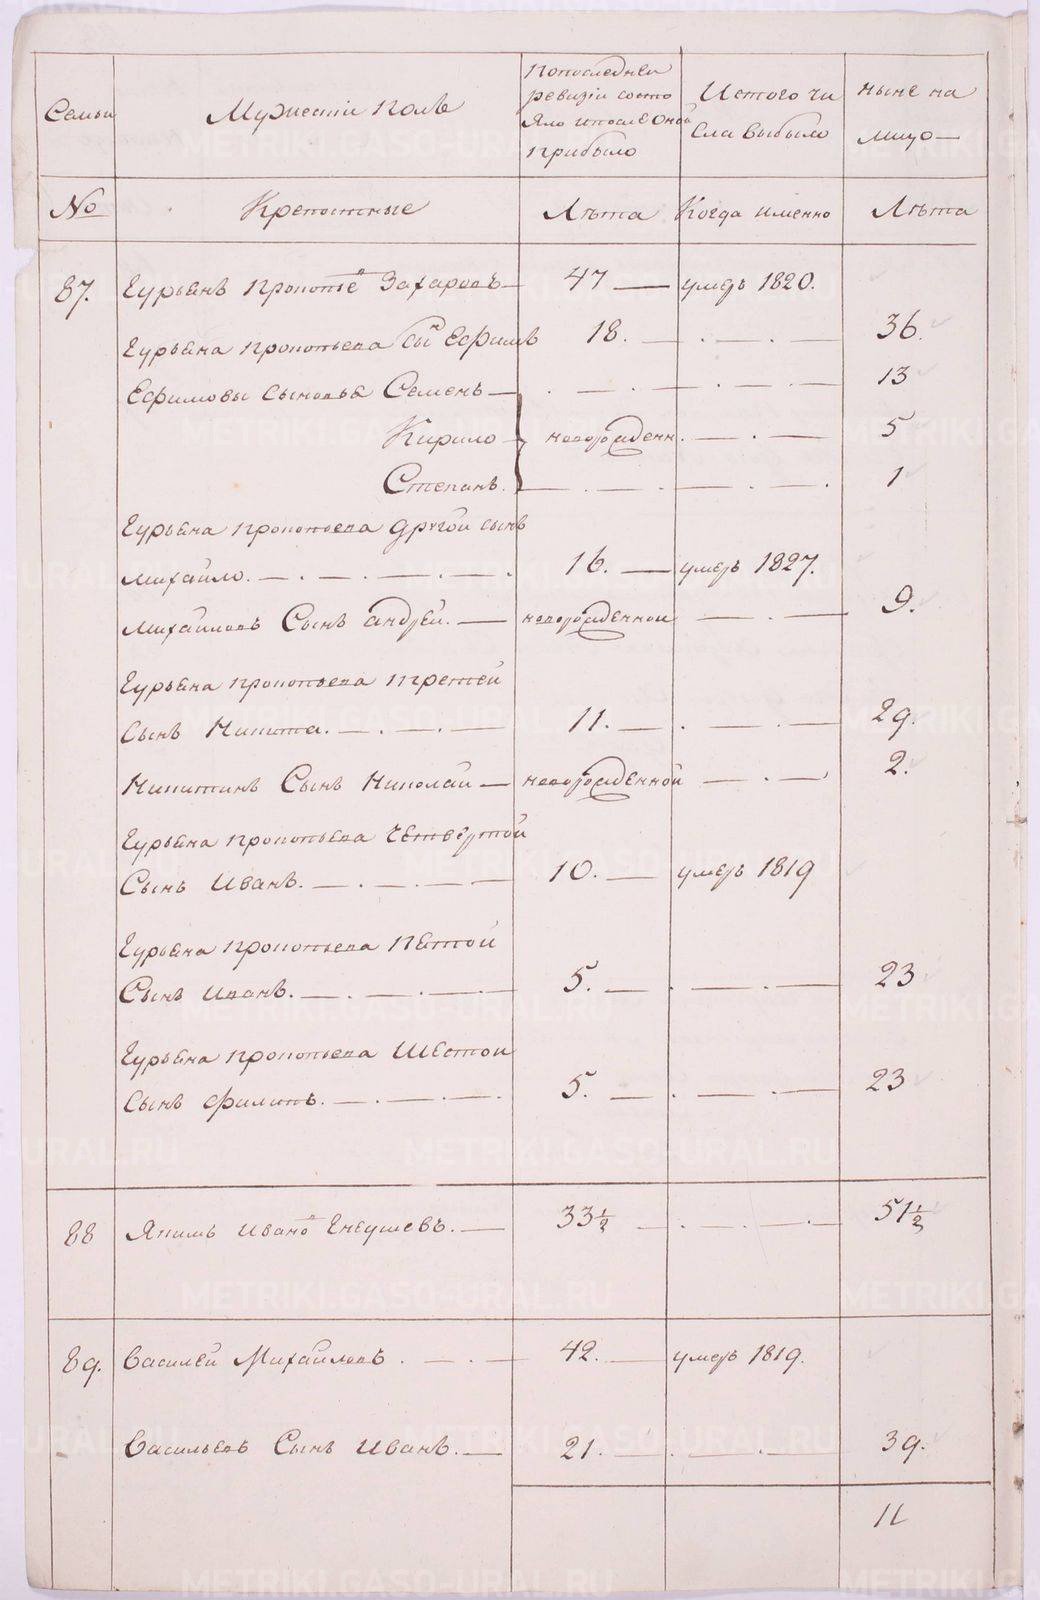 Семьи
Мужескiй полъ
Попоследней
ревизiи состо
яло ипосле оной
прибыло
Истого чи
сла выбыло
ныне на
лицо —
№
Крепостные
Лѣта
Когда именно
Лѣта
87. Гурьянъ Прокопьевъ Захаровъ — 47 — умеръ 1820.
Гурьяна Прокопьева сынъ Ефимъ 18. — . — . — 36.
Ефимовы сыновья Семенъ — . — . — . — 13
Кирило — новорожденн. — . — 5
Степанъ. — . — . — . 1
Гурьяна Прокопьева другой сынъ
Михайло. — . — . — . — . 16. — умеръ 1827.
Михайловъ Сынъ Андрей. — новорожденной — . — 9.
Гурьяна Прокопьева третей
Сынъ Никита. — . — . — 11. — . — . — 29.
Никитинъ Сынъ Николай — новорожденной — . — 2.
Гурьяна Прокопьева четвертой
Сынъ Иванъ. — . — . — 10. — умеръ 1819
Гурьяна Прокопьева пятой
Сынъ Иванъ. — . — . — 5. — . — . — 23
Гурьяна Прокопьева шестой
Сынъ Филипъ. — . — . — . 5. — . — . — 23
88 Якимъ Ивановъ Енкушевъ. — 33½ — . — . — 51½
89. Василей Михайловъ . — . — 42. — умеръ 1819.
Васильевъ Сынъ Иванъ. — 21. — . — . — 39.
11
METRIKI.GASO-URAL.RU